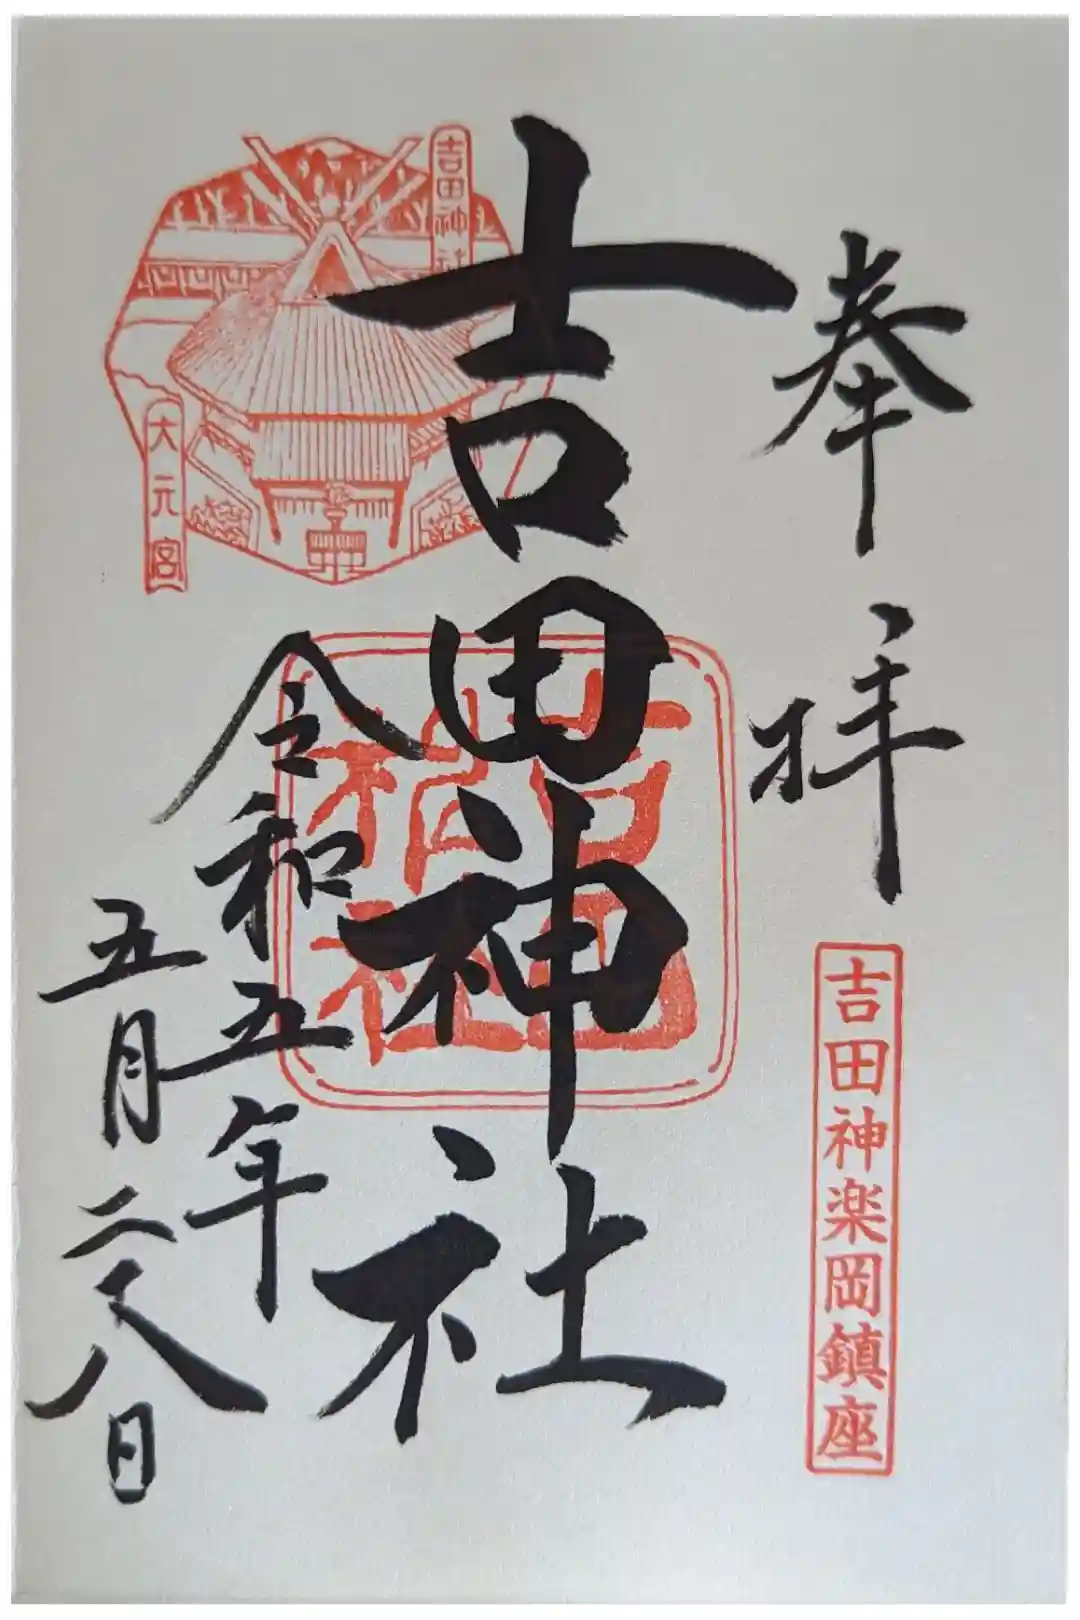 奉拝
吉田神楽岡鎮座
吉田神社
吉田神社
吉田神社
大元宮
令和五年
五月二十八日